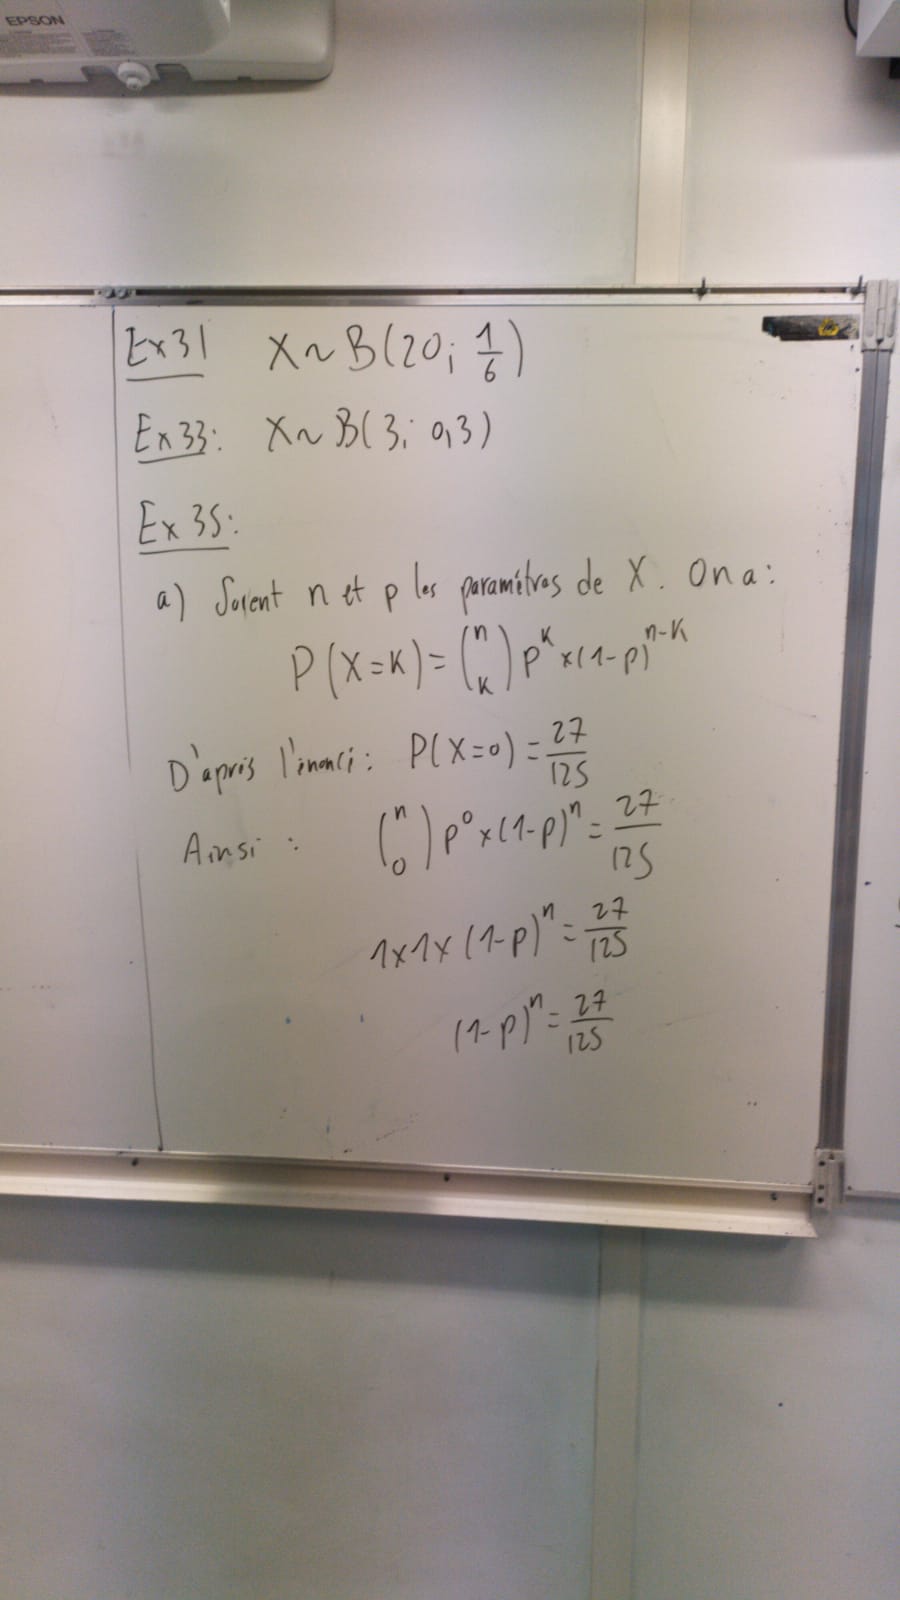 EPSON
Ex31 X ~ B(20; 1/6)
Ex 33: X ~ B(3; 0,3)
Ex 35:
a) Soient n et p les paramètres de X. On a:
P(X=K) = (n K) p^K × (1-p)^(n-K)
D'après l'énoncé: P(X=0) = 27/125
Ainsi : (n 0) p^0 × (1-p)^n = 27/125
1×1× (1-p)^n = 27/125
(1-p)^n = 27/125